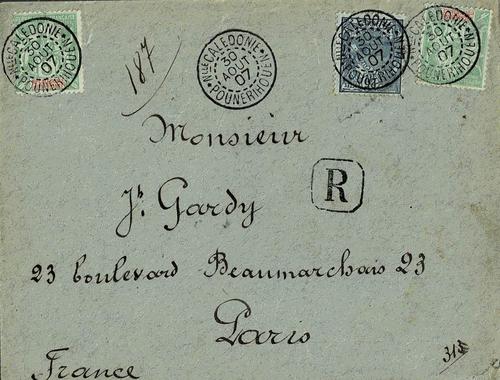 Nlle CALEDONIE
30
AOUT
07
POUNERIHOUEN
Nlle CALEDONIE
30
AOUT
07
POUNERIHOUEN
Nlle CALEDONIE
30
AOUT
07
POUNERIHOUEN
Nlle CALEDONIE
30
AOUT
07
POUNERIHOUEN
187
Monsieur
R
Jh. Gardy
23 boulevard Beaumarchais 23
Paris
313
France